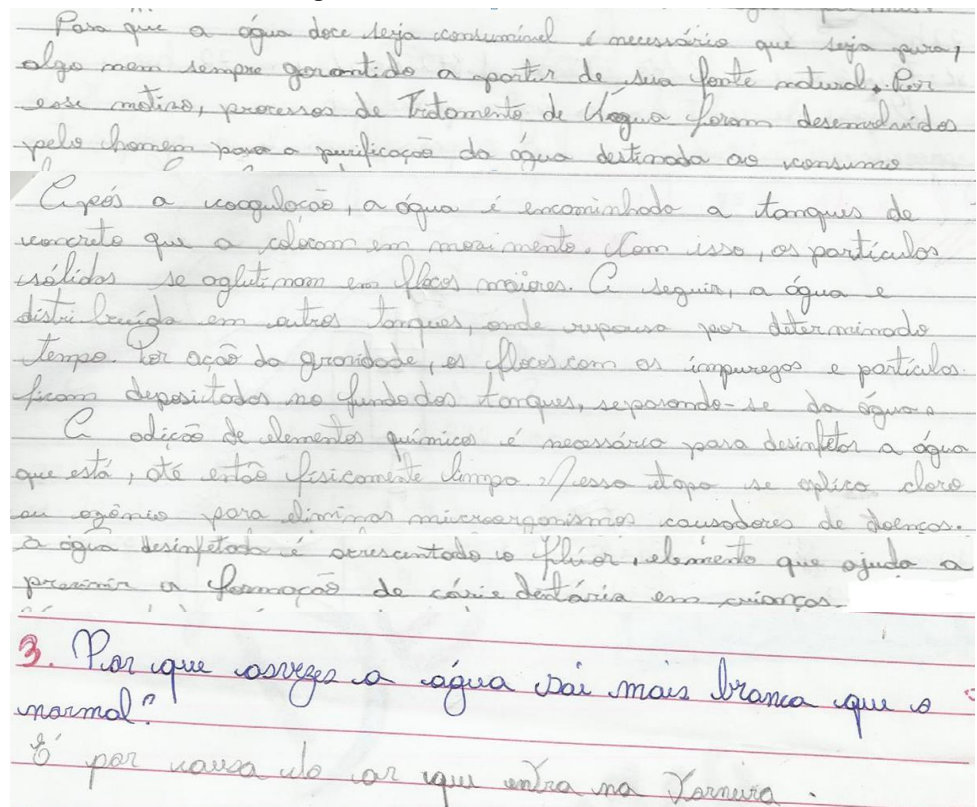 Para que a água doce seja consumível é necessário que seja pura,
algo nem sempre garantido a partir de sua fonte natural. Por
esse motivo, processos de Tratamento de Água foram desenvolvidos
pelo homem para a purificação da água destinada ao consumo
Após a coagulação, a água é encaminhada a tanques de
concreto que a colocam em movimento. Com isso, as partículas
sólidas se aglutinam em flocos maiores. A seguir, a água e
distribuída em outros tanques, onde repousa por determinado
tempo. Por ação da gravidade, os flocos com as impurezas e partículas
ficam depositados no fundo dos tanques, separando-se da água.
A adição de elementos químicos é necessária para desinfetar a água
que está, até então fisicamente limpa. Nessa etapa se aplica cloro
ou ozônio para eliminar microorganismos causadores de doenças.
a água desinfetada é acrescentado o flúor, elemento que ajuda a
prevenir a formação de cárie dentária em crianças.
3. Por que asvezes a água sai mais branca que o
normal?
É por causa do ar que entra na Torneira.